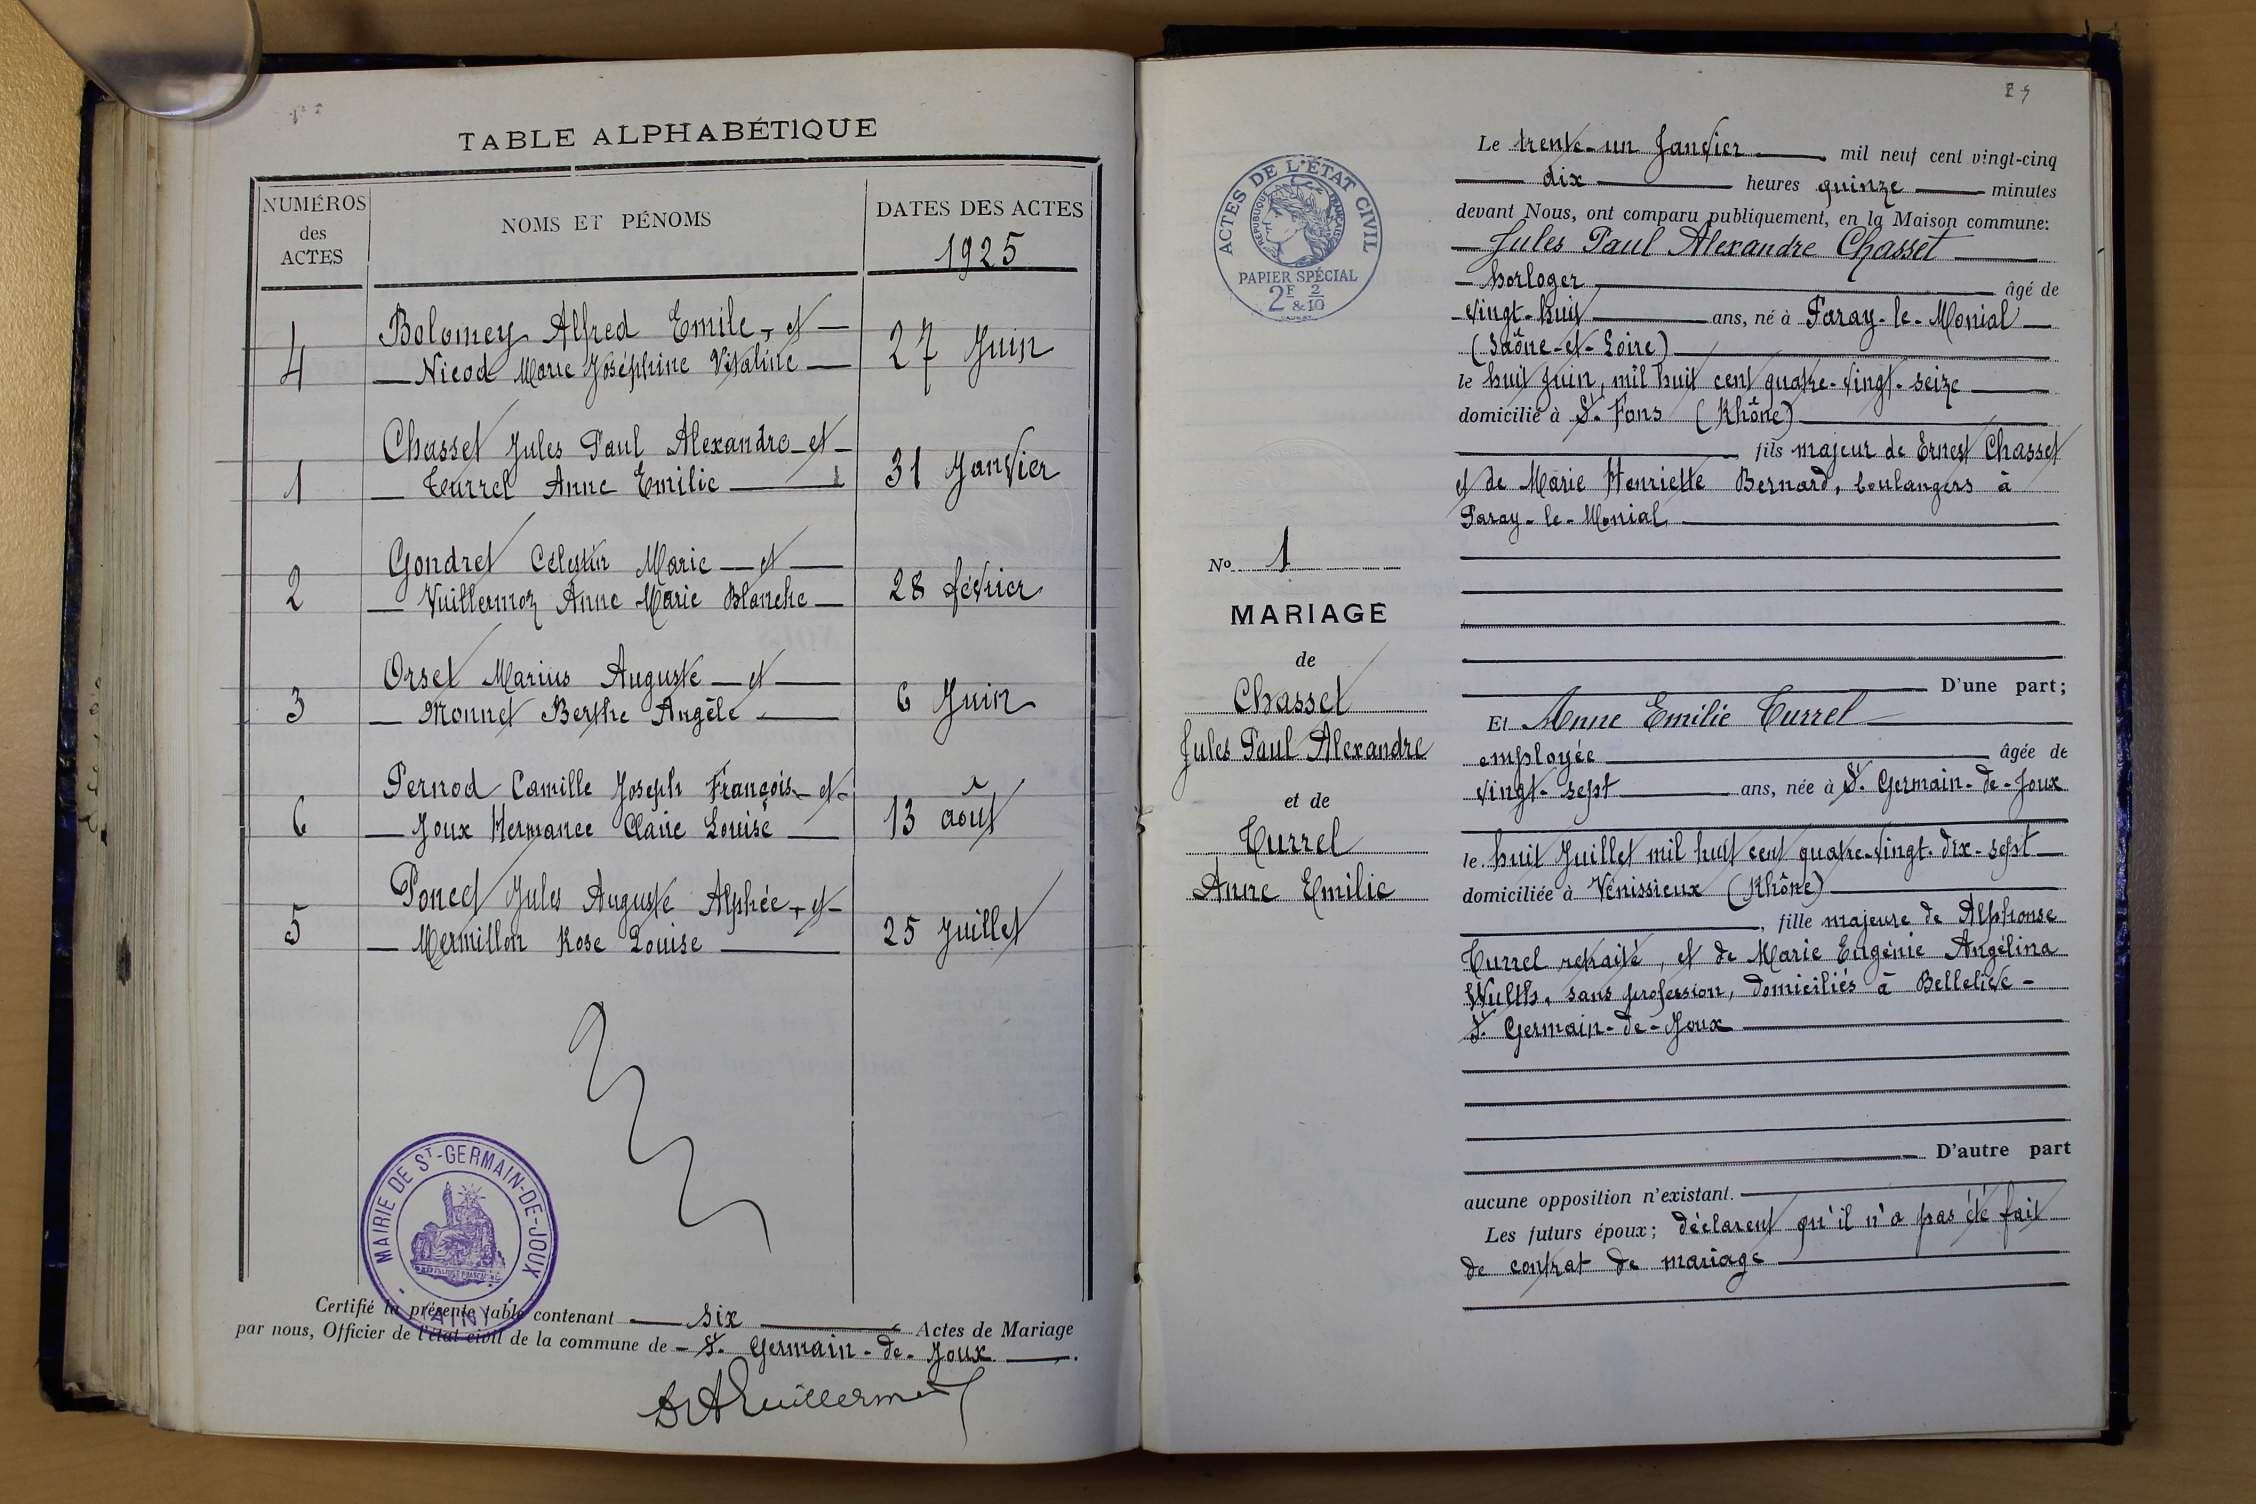 TABLE ALPHABÉTIQUE
NUMÉROS
des
ACTES
NOMS ET PÉNOMS
DATES DES ACTES
1925
4
Bolomey Alfred Emile, et
Nicod Marie Joséphine Vitaline
27 Juin
1
Chasset Jules Paul Alexandre et
Turrel Anne Emilie
31 Janvier
2
Gondret Célestin Marie et
Vuillermoz Anne Marie Blanche
28 février
3
Orset Marius Auguste et
Monnet Berthe Angèle
6 Juin
6
Pernod Camille Joseph François et
Joux Hermance Claire Louise
13 août
5
Poncet Jules Auguste Alphée, et
Mermillon Rose Louise
25 Juillet
MAIRIE DE ST-GERMAIN-DE-JOUX
(AIN)
Certifié la présente table contenant six Actes de Mariage
par nous, Officier de l'état civil de la commune de St. Germain-de-Joux.
ACTES DE L'ÉTAT CIVIL
REPUBLIQUE FRANÇAISE
PAPIER SPÉCIAL
2F & 2/10
No 1
MARIAGE
de
Chasset
Jules Paul Alexandre
et de
Turrel
Anne Emilie
Le trente-un Janvier mil neuf cent vingt-cinq
dix heures quinze minutes
devant Nous, ont comparu publiquement, en la Maison commune:
Jules Paul Alexandre Chasset
horloger âgé de
vingt-huit ans, né à Paray-le-Monial
(Saône-et-Loire)
le huit Juin, mil huit cent quatre-vingt-seize
domicilié à St. Fons (Rhône)
fils majeur de Ernest Chasset
et de Marie Henriette Bernard, boulangers à
Paray-le-Monial
D'une part;
Et Anne Emilie Turrel
employée âgée de
vingt-sept ans, née à St. Germain-de-Joux
le huit Juillet mil huit cent quatre-vingt-dix-sept
domiciliée à Vénissieux (Rhône)
, fille majeure de Alphonse
Turrel retraité, et de Marie Eugénie Angélina
Wulth, sans profession, domiciliés à Bellelive-
St. Germain-de-Joux
D'autre part
aucune opposition n'existant.
Les futurs époux; déclarent qu'il n'a pas été fait
de contrat de mariage